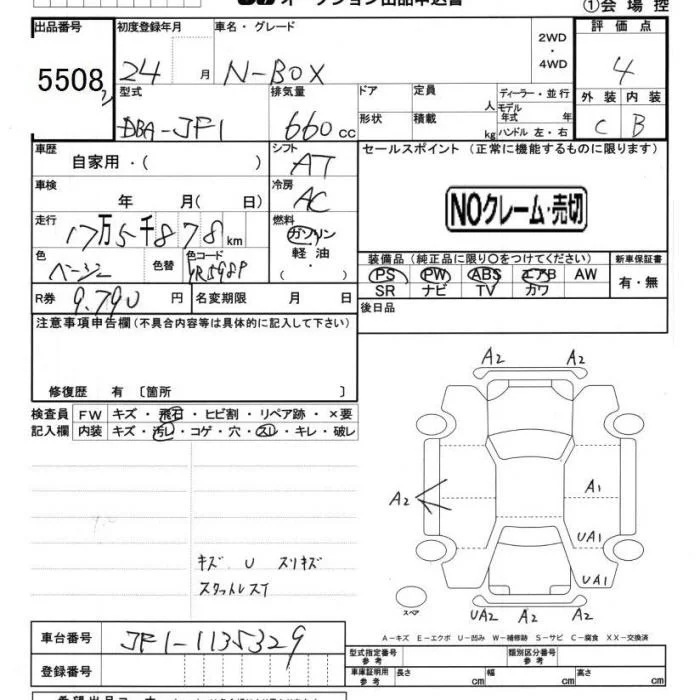 オークション出品申込書
①会場控
出品番号 初度登録年月 車名・グレード 評価点
2WD
・
4WD
5508 24 月 N-BOX 4
型式 排気量 ドア 定員 人 ディーラー・並行 外装 内装
モデル年式 年
DBA-JF1 660 cc 形状 積載 kg ハンドル 左・右 C B
車歴 自家用・( ) シフト AT セールスポイント(正常に機能するものに限ります)
車検 年 月( 日) 冷房 AC
NOクレーム・売切
走行 17万5千878 km 燃料 ガソリン
軽油
・( ・ )
色 ベージュ 色替 色コード YR598P
装備品(純正品に限り○をつけてください) 新車保証書
PS PW ABS エアB AW 有・無
SR ナビ TV カワ
R券 9,790 円 名変期限 月 日 後日品
注意事項申告欄(不具合内容等は具体的に記入して下さい)
修復歴 有〔箇所 〕
検査員 FW キズ・飛石・ヒビ割・リペア跡・×要
記入欄 内装 キズ・汚レ・コゲ・穴・スレ・キレ・破レ
A2 A2
A2 A1
UA1
UA1
UA2 A2 A2
スペア
キズ U スリキズ
スタットレスイ
A-キズ E-エクボ U-凹み W-補修跡 S-サビ C-腐食 XX-交換済
車台番号 JF1-1135329
型式指定番号 参考 類別区分番号 参考
登録番号
車庫証明用 参考 長さ cm 幅 cm 高さ cm
希望出品コーナー